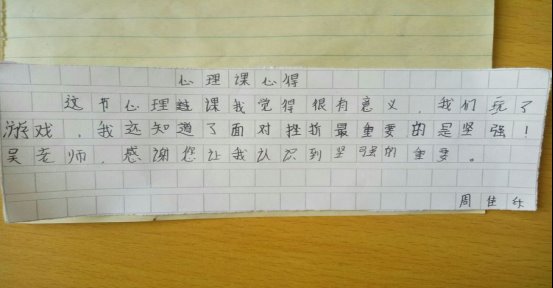 心理课心得
这节心理课我觉得很有意义，我们玩了
游戏，我还知道了面对挫折最重要的是坚强！
吴老师，感谢您让我认识到坚强的重要。
周佳